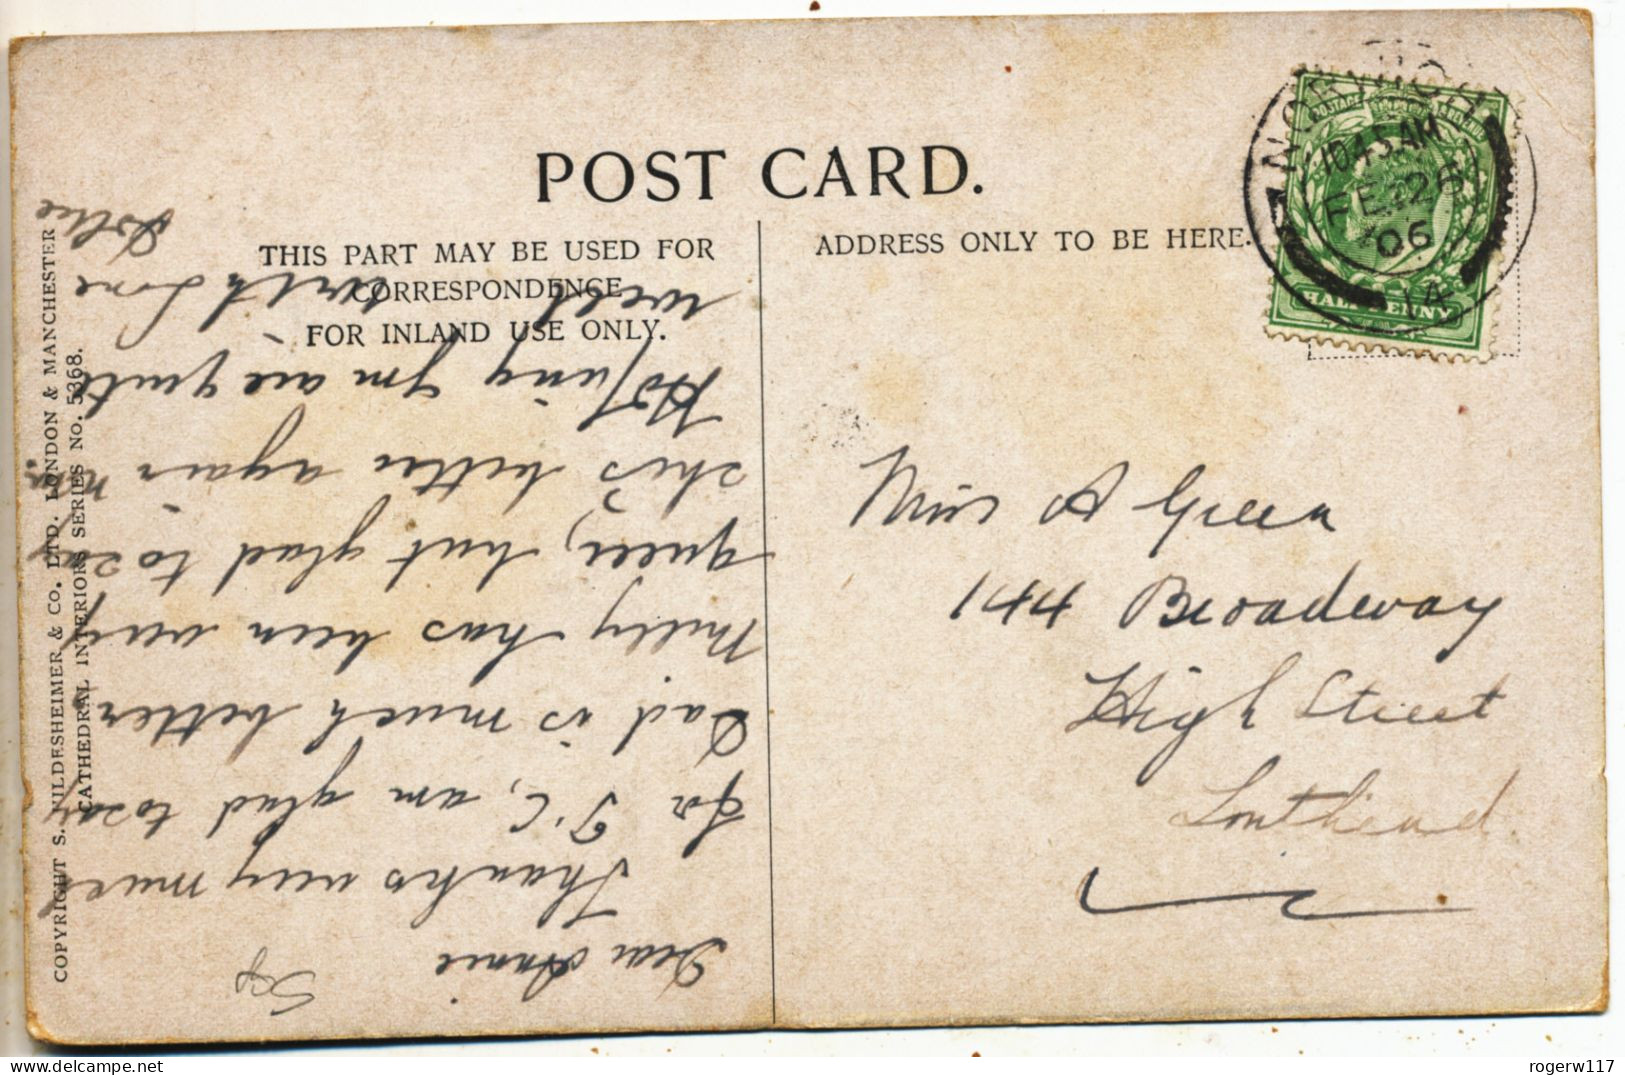 POST CARD.
THIS PART MAY BE USED FOR
CORRESPONDENCE
FOR INLAND USE ONLY.
ADDRESS ONLY TO BE HERE.
NORWICH
10.45 AM
FE 26
06
14
POSTAGE REVENUE
HALFPENNY
Miss A Green
144 Broadway
High Street
Southend.
Dear Annie
Thanks very much
for P.C, am glad to say
Dad is much better
Milly has been very
queer, but glad to say
she's better again now.
Hoping you are quite
well with Love
COPYRIGHT S. HILDESHEIMER & CO. LTD. LONDON & MANCHESTER
CATHEDRAL INTERIORS SERIES NO. 5368.
rogerw117